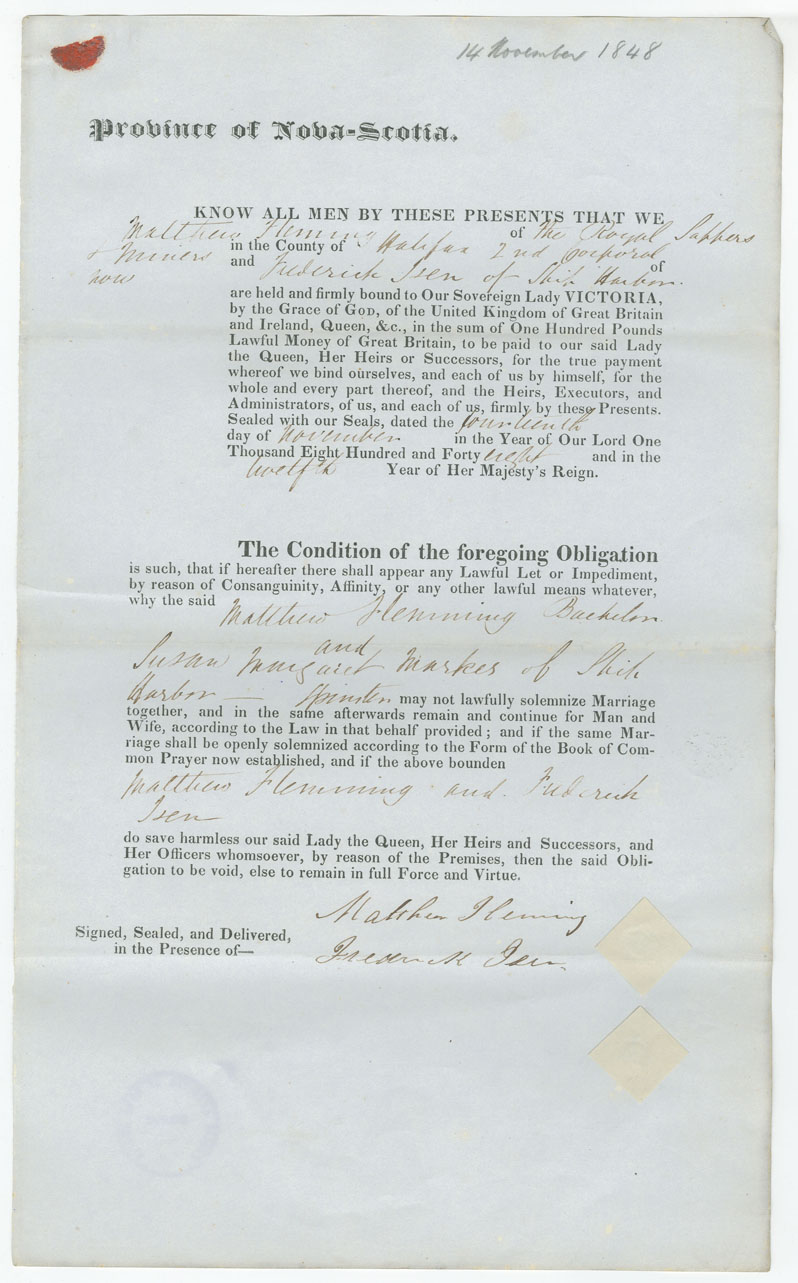 14 November 1848
Province of Nova-Scotia.
KNOW ALL MEN BY THESE PRESENTS THAT WE
Matthew Fleming of the Royal Sappers
& Miners in the County of Halifax 2nd Corporal
now and Frederick Isen of Ship Harbor. of
are held and firmly bound to Our Sovereign Lady VICTORIA,
by the Grace of GOD, of the United Kingdom of Great Britain
and Ireland, Queen, &c., in the sum of One Hundred Pounds
Lawful Money of Great Britain, to be paid to our said Lady
the Queen, Her Heirs or Successors, for the true payment
whereof we bind ourselves, and each of us by himself, for the
whole and every part thereof, and the Heirs, Executors, and
Administrators, of us, and each of us, firmly by these Presents.
Sealed with our Seals, dated the fourteenth
day of November in the Year of Our Lord One
Thousand Eight Hundred and Forty eight and in the
twelfth Year of Her Majesty's Reign.
The Condition of the foregoing Obligation
is such, that if hereafter there shall appear any Lawful Let or Impediment,
by reason of Consanguinity, Affinity, or any other lawful means whatever,
why the said Matthew Flemming Bachelor
and
Susan Margaret Marker of Ship
Harbor — Spinster may not lawfully solemnize Marriage
together, and in the same afterwards remain and continue for Man and
Wife, according to the Law in that behalf provided; and if the same Mar-
riage shall be openly solemnized according to the Form of the Book of Com-
mon Prayer now established, and if the above bounden
Matthew Flemming and Frederick
Isen
do save harmless our said Lady the Queen, Her Heirs and Successors, and
Her Officers whomsoever, by reason of the Premises, then the said Obli-
gation to be void, else to remain in full Force and Virtue.
Matthew Fleming
Signed, Sealed, and Delivered,
in the Presence of—
Frederick Isen